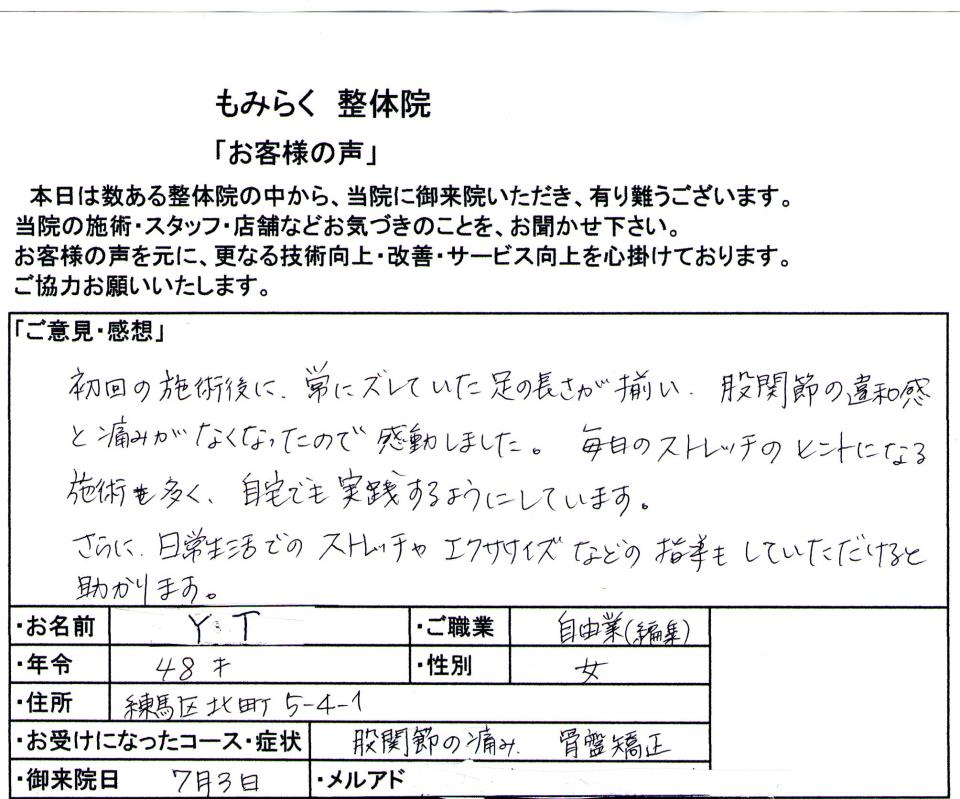 もみらく 整体院
「お客様の声」
本日は数ある整体院の中から、当院に御来院いただき、有り難うございます。
当院の施術・スタッフ・店舗などお気づきのことを、お聞かせ下さい。
お客様の声を元に、更なる技術向上・改善・サービス向上を心掛けております。
ご協力お願いいたします。
「ご意見・感想」
初回の施術後に、常にズレていた足の長さが揃い、股関節の違和感
と痛みがなくなったので感動しました。毎日のストレッチのヒントになる
施術も多く、自宅でも実践するようにしています。
さらに、日常生活でのストレッチやエクササイズなどの指導もしていただけると
助かります。
・お名前 Y T ・ご職業 自由業(編集)
・年令 48才 ・性別 女
・住所 練馬区北町5-4-1
・お受けになったコース・症状 股関節の痛み、骨盤矯正
・御来院日 7月3日 ・メルアド